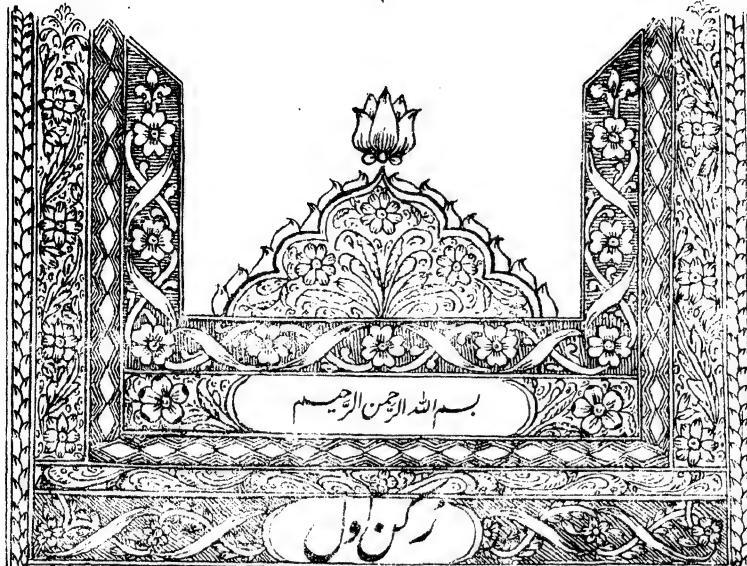 بسم الله الرحمن الرحیم
رکن اول